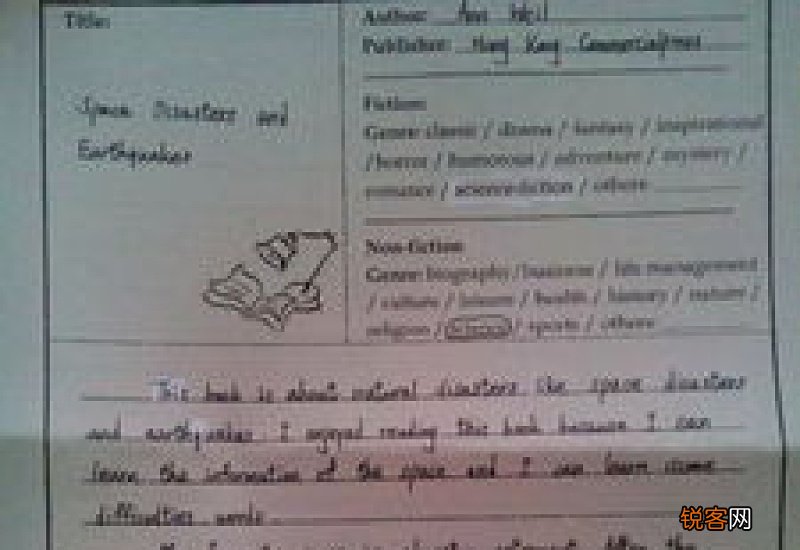 Title:
Space Disasters and
Earthquakes
Author: Ann Weil
Publisher: Hong Kong Commercialpress
Fiction
Genre: classic / drama / fantasy / inspirational
/ horror / humorous / adventure / mystery /
romance / science-fiction / others
Non-fiction
Genre: biography / business / life management
/ culture / leisure / health / history / nature /
religion / science / sports / others
This book is about natural disasters like space disasters
and earthquakes. I enjoyed reading this book because I can
learn the information of the space and I can learn some
difficulties words
锐客网